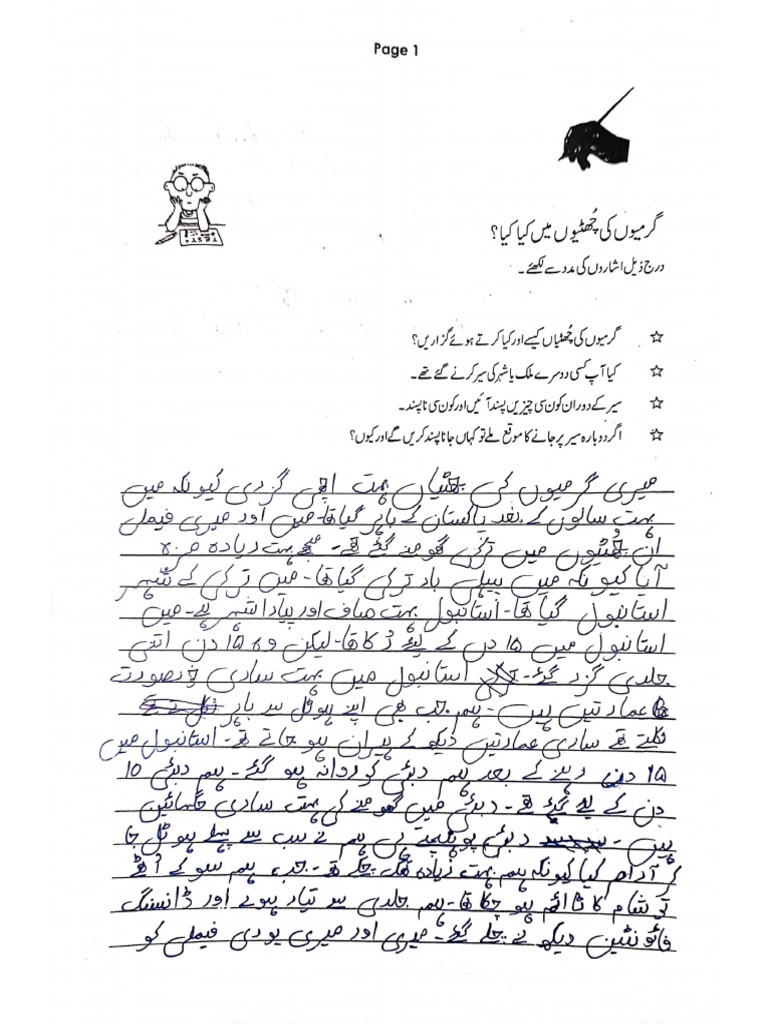 Page 1
گرمیوں کی چُھٹیوں میں کیا کیا؟
درج ذیل اشاروں کی مدد سے لکھئے۔
☆ گرمیوں کی چُھٹیاں کیسے اور کیا کرتے ہوئے گزاریں؟
☆ کیا آپ کسی دوسرے ملک یا شہر کی سیر کرنے گئے تھے۔
☆ سیر کے دوران کون سی چیزیں پسند آئیں اور کون سی ناپسند۔
☆ اگر دوبارہ سیر پر جانے کا موقع ملے تو کہاں جانا پسند کریں گے اور کیوں؟
میری گرمیوں کی چھٹیاں بہت اچھی گزری کیونکہ میں
بہت سالوں کے بعد پاکستان کے باہر گیا تھا۔ میں اور میری فیملی
ان چُھٹیوں میں ترکی گھومنے گئے تھے۔ مجھے بہت زیادہ مزہ
آیا کیونکہ میں پہلی بار ترکی گیا تھا۔ میں ترکی کے شہر
استانبول گیا تھا۔ استانبول بہت صاف اور پیارا شہر ہے۔ میں
استانبول میں 15 دن کے لیئے رُکا تھا۔ لیکن وہ 15 دن اتنی
جلدی گزر گئے۔ استانبول میں بہت ساری خوبصورت
عمارتیں ہیں۔ ہم جب بھی اپنے ہوٹل سے باہر
نکلتے تھے ساری عمارتیں دیکھ کے حیران ہو جاتے تھے۔ استانبول میں
15 دن رہنے کے بعد ہم دبئی کو روانہ ہو گئے۔ ہم دبئی 10
دن کے لیئے گئے تھے۔ دبئی میں گھومنے کی بہت ساری جگہائیں
ہیں۔ دبئی پوہنچتے ہی ہم نے سب سے پہلے ہوٹل جا
کر آرام کیا کیونکہ ہم بہت زیادہ تھک چکے تھے۔ جب ہم سو کے اُٹھے
تو شام کا ٹائم ہو چکا تھا۔ ہم جلدی سے تیار ہوئے اور ڈانسنگ
فائونٹین دیکھ نے چلے گئے۔ میری اور میری پوری فیملی کو